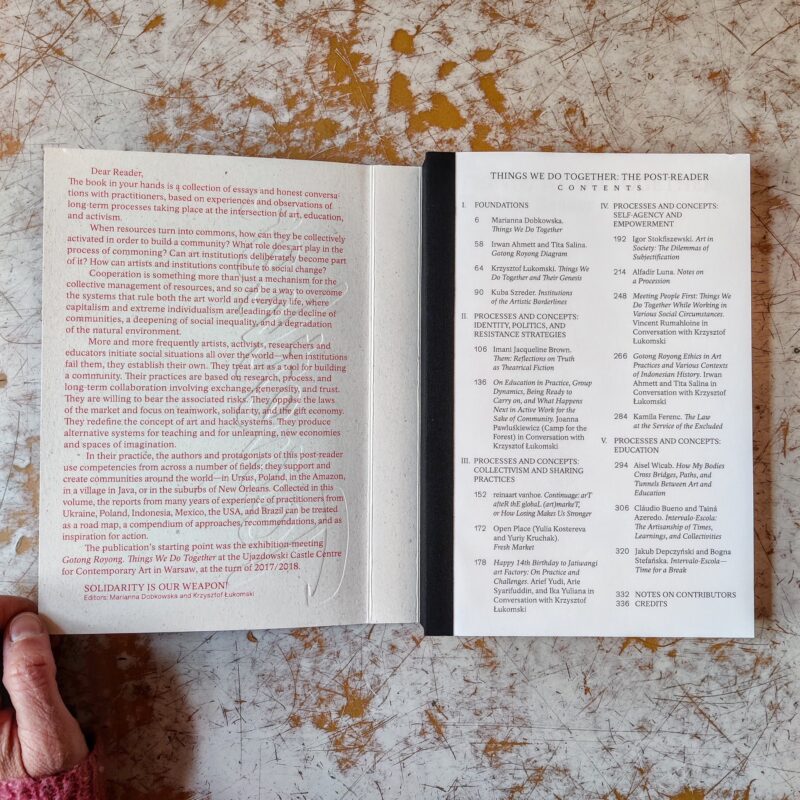 Dear Reader,
The book in your hands is a collection of essays and honest conversa-
tions with practitioners, based on experiences and observations of
long-term processes taking place at the intersection of art, education,
and activism.
When resources turn into commons, how can they be collectively
activated in order to build a community? What role does art play in the
process of commoning? Can art institutions deliberately become part
of it? How can artists and institutions contribute to social change?
Cooperation is something more than just a mechanism for the
collective management of resources, and so can be a way to overcome
the systems that rule both the art world and everyday life, where
capitalism and extreme individualism are leading to the decline of
communities, a deepening of social inequality, and a degradation
of the natural environment.
More and more frequently artists, activists, researchers and
educators initiate social situations all over the world—when institutions
fail them, they establish their own. They treat art as a tool for building
a community. Their practices are based on research, process, and
long-term collaboration involving exchange, generosity, and trust.
They are willing to bear the associated risks. They oppose the laws
of the market and focus on teamwork, solidarity, and gift economy.
They redefine the concept of art and hack systems. They produce
alternative systems for teaching and for unlearning, new economies
and spaces of imagination.
In their practice, the authors and protagonists of this post-reader
use competencies from across a number of fields: they support and
create communities around the world—in Ursus, Poland, in the Amazon,
in a village in Java, or in the suburbs of New Orleans. Collected in this
volume, the reports from many years of experience of practitioners from
Ukraine, Poland, Indonesia, Mexico, the USA, and Brazil can be treated
as a road map, a compendium of approaches, recommendations, and as
inspiration for action.
The publication's starting point was the exhibition-meeting
Gotong Royong. Things We Do Together at the Ujazdowski Castle Centre
for Contemporary Art in Warsaw, at the turn of 2017/2018.
SOLIDARITY IS OUR WEAPON!
Editors: Marianna Dobkowska and Krzysztof Łukomski
THINGS WE DO TOGETHER: THE POST-READER
CONTENTS
I. FOUNDATIONS
6 Marianna Dobkowska.
Things We Do Together
58 Irwan Ahmett and Tita Salina.
Gotong Royong Diagram
64 Krzysztof Łukomski. Things We
Do Together and Their Genesis
90 Kuba Szreder. Institutions
of the Artistic Borderlines
II. PROCESSES AND CONCEPTS:
IDENTITY, POLITICS, AND
RESISTANCE STRATEGIES
106 Imani Jacqueline Brown.
Them: Reflections on Truth
as Theatrical Fiction
136 On Education in Practice, Group
Dynamics, Being Ready to
Carry on, and What Happens
Next in Active Work for the
Sake of Community. Joanna
Pawluśkiewicz (Camp for the
Forest) in Conversation with
Krzysztof Łukomski
III. PROCESSES AND CONCEPTS:
COLLECTIVISM AND SHARING
PRACTICES
152 reinaart vanhoe. Continuage: arT
afteR thE globaL (art)markeT,
or How Losing Makes Us Stronger
172 Open Place (Yulia Kostereva
and Yuriy Kruchak).
Fresh Market
178 Happy 14th Birthday to Jatiwangi
art Factory: On Practice and
Challenges. Arief Yudi, Arie
Syarifuddin, and Ika Yuliana in
Conversation with Krzysztof
Łukomski
IV. PROCESSES AND CONCEPTS:
SELF-AGENCY AND
EMPOWERMENT
192 Igor Stokfiszewski. Art in
Society: The Dilemmas of
Subjectification
214 Alfadir Luna. Notes on
a Procession
248 Meeting People First: Things We
Do Together While Working in
Various Social Circumstances.
Vincent Rumahloine in
Conversation with Krzysztof
Łukomski
266 Gotong Royong Ethics in Art
Practices and Various Contexts
of Indonesian History. Irwan
Ahmett and Tita Salina in
Conversation with Krzysztof
Łukomski
284 Kamila Ferenc. The Law
at the Service of the Excluded
V. PROCESSES AND CONCEPTS:
EDUCATION
294 Aisel Wicab. How My Bodies
Cross Bridges, Paths, and
Tunnels Between Art and
Education
306 Cláudio Bueno and Tainá
Azeredo. Intervalo-Escola:
The Artisanship of Times,
Learnings, and Collectivities
320 Jakub Depczyński and Bogna
Stefańska. Intervalo-Escola—
Time for a Break
332 NOTES ON CONTRIBUTORS
336 CREDITS